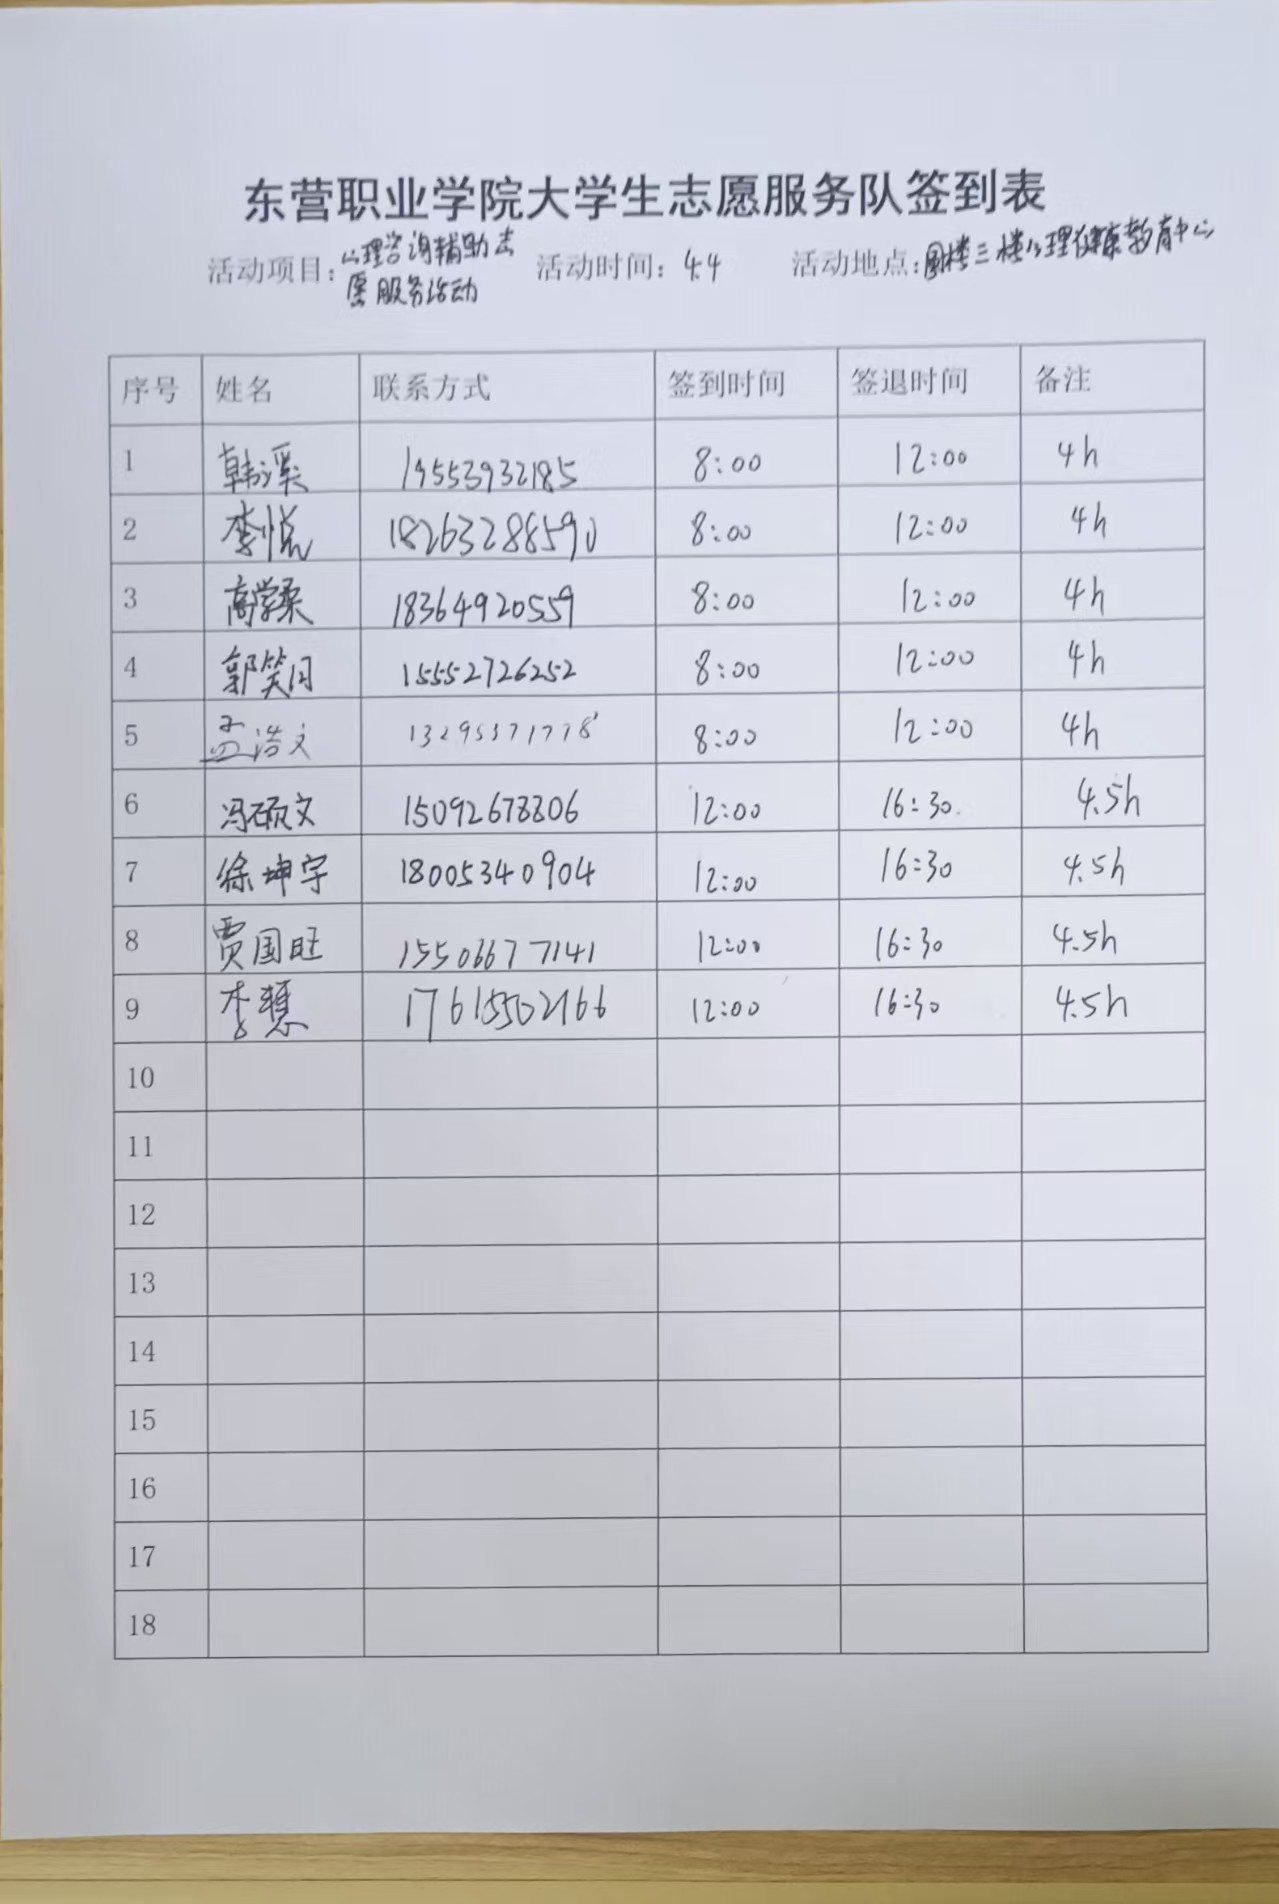 东营职业学院大学生志愿服务队签到表
活动项目：心理咨询辅助志愿服务活动 活动时间：4.4 活动地点：圆楼三楼心理健康教育中心
序号 姓名 联系方式 签到时间 签退时间 备注
1 韩溪 19553932185 8:00 12:00 4h
2 李悦 18263288590 8:00 12:00 4h
3 高学柔 18364920559 8:00 12:00 4h
4 郭笑闫 15552726252 8:00 12:00 4h
5 孟浩文 13295371778 8:00 12:00 4h
6 冯硕文 15092678806 12:00 16:30 4.5h
7 徐坤宇 18005340904 12:00 16:30 4.5h
8 贾国旺 15506677141 12:00 16:30 4.5h
9 李慧 17615502166 12:00 16:30 4.5h
10
11
12
13
14
15
16
17
18